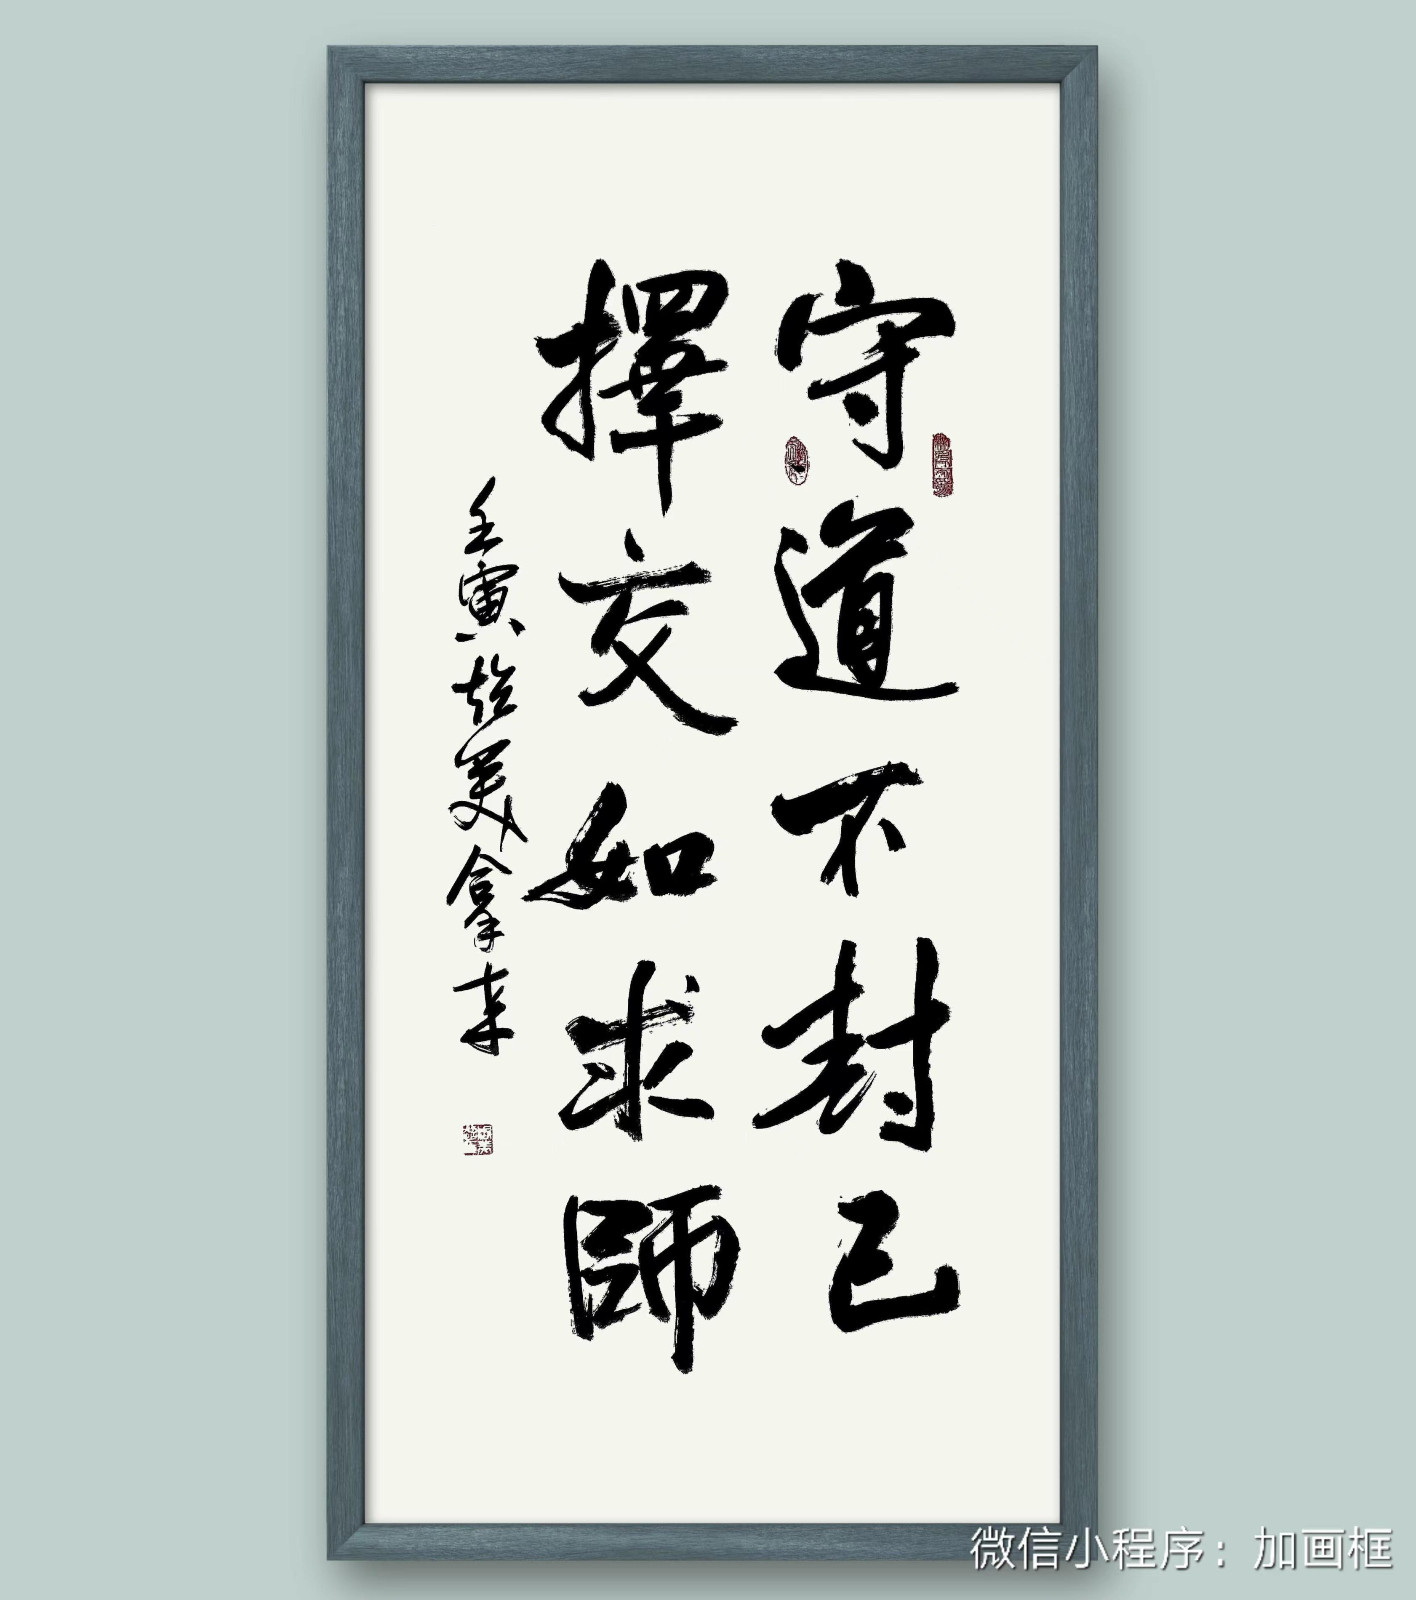 守道不封己
擇交如求師
壬寅
微信小程序：加画框